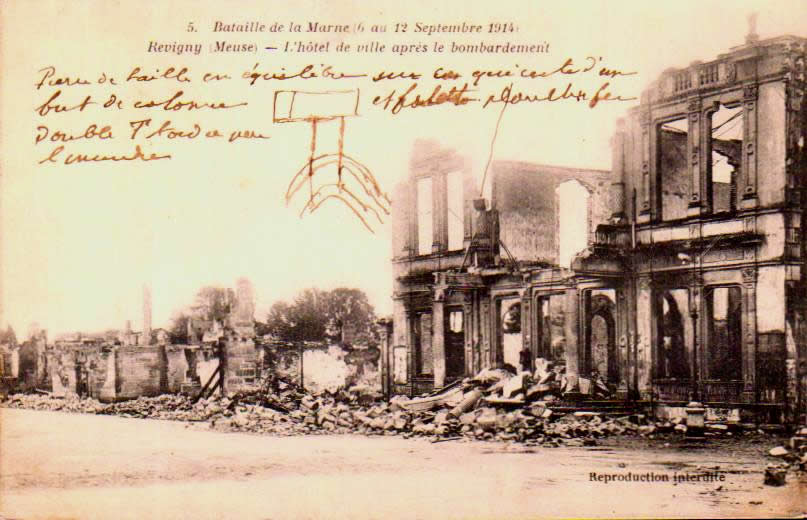 5. Bataille de la Marne (6 au 12 Septembre 1914)
Revigny (Meuse) — L'hôtel de ville après le bombardement
Pierre de taille en équilibre sur ce qui reste d'un
but de colonne et
double T tordu
Reproduction interdite